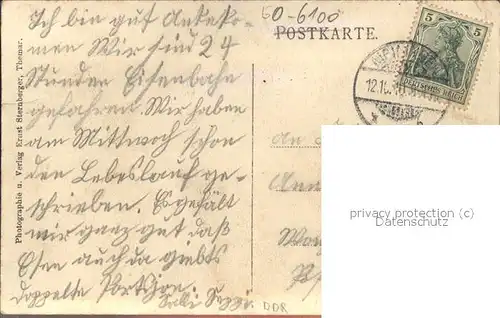 Ich bin gut Anteko-
men Wir sind 24
Stunden Eisenbahn
gefahren. Wir haben
am Mittwoch schon
den Lebeslauf ge-
schrieben. Es gefält
mir ganz gut daß
Esen auch da giebts
doppelte Portsjon.
DDR
Photographie u. Verlag Ernst Sternberger, Themar.
60-6100
POSTKARTE.
5 5
DEUTSCHES REICH
12.10
An
privacy protection (c)
Datenschutz